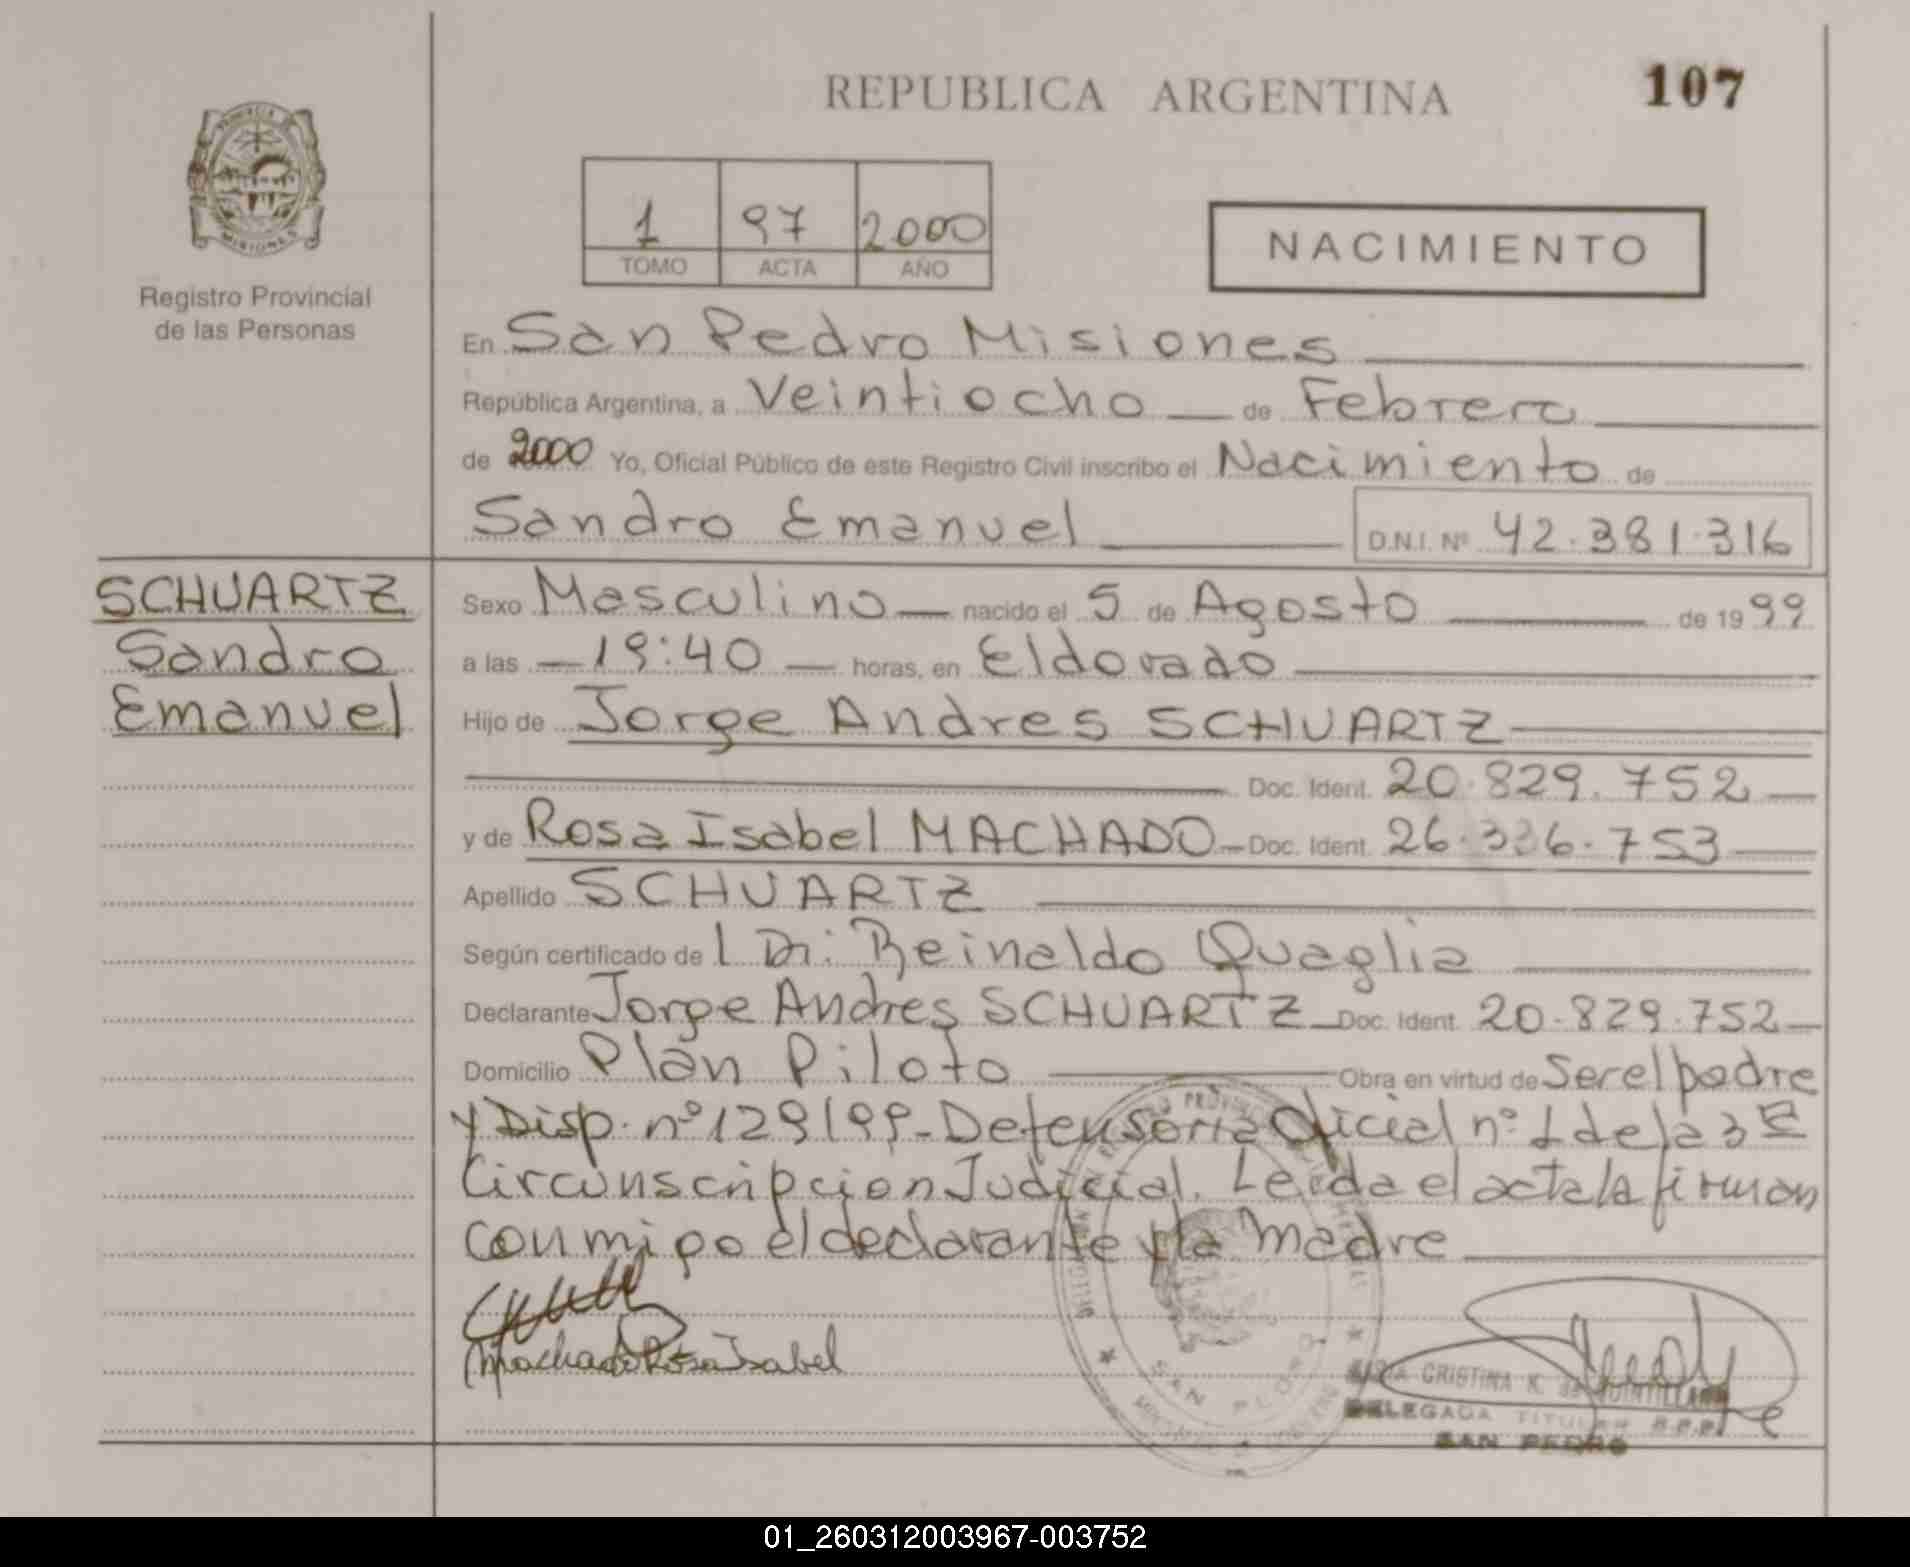 REPUBLICA ARGENTINA
107
PROVINCIA
MISIONES
Registro Provincial
de las Personas
1 97 2000
TOMO ACTA AÑO
NACIMIENTO
En San Pedro Misiones
República Argentina, a Veintiocho de Febrero
de 2000 Yo, Oficial Público de este Registro Civil inscribo el Nacimiento de
Sandro Emanuel D.N.I. Nº 42.381.316
SCHUARTZ
Sandro
Emanuel
Sexo Masculino nacido el 5 de Agosto de 1999
a las 19:40 horas, en Eldorado
Hijo de Jorge Andres SCHUARTZ
Doc. Ident. 20.829.752
y de Rosa Isabel MACHADO Doc. Ident. 26.336.753
Apellido SCHUARTZ
Según certificado de l Dr: Reinaldo Quaglia
Declarante Jorge Andres SCHUARTZ Doc. Ident. 20.829.752
Domicilio Plan Piloto Obra en virtud de Ser el padre
y Disp. nº 129/99 - Defensoria Oficial nº 1 de la 3ª
Circunscripcion Judicial. Leida el acta la firman
conmigo el declarante y la madre
Machado Rosa Isabel
SAN PEDRO
CRISTINA K. de QUINTILLAN
DELEGADA TITULAR R.P.P.
SAN PEDRO
01_260312003967-003752